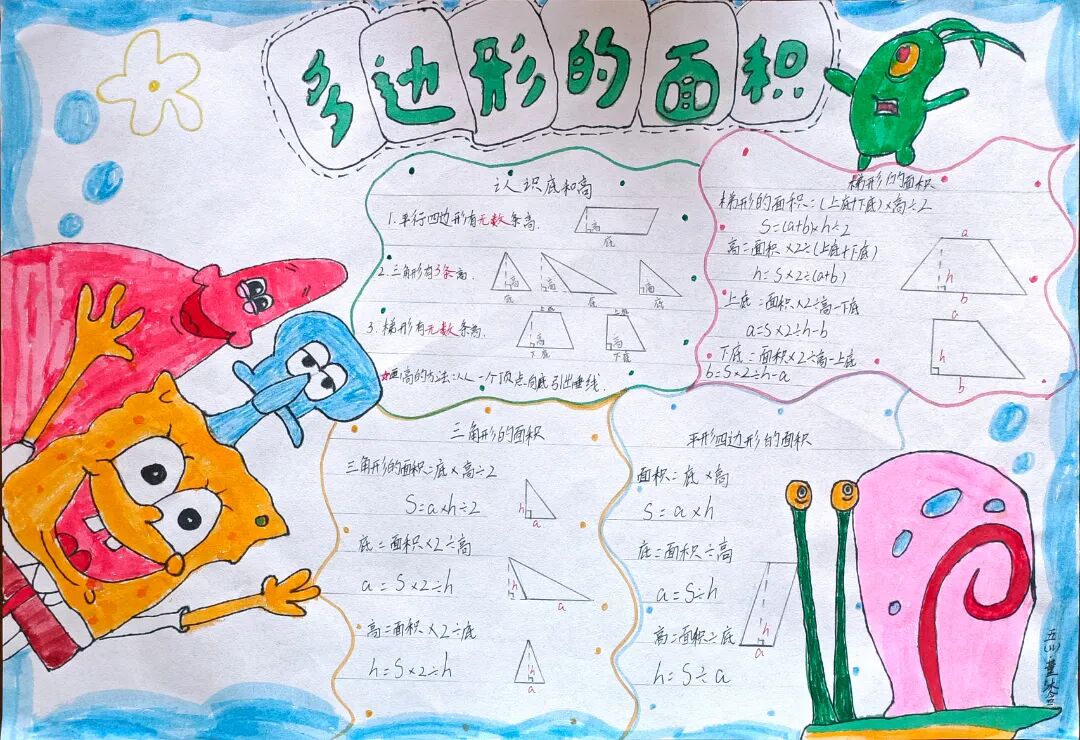 多边形的面积
认识底和高
1.平行四边形有无数条高.
高
底
2.三角形有3条高.
高
底
高
底
高
底
3.梯形有无数条高.
上底
高
下底
上底
高
下底
画高的方法:从一个顶点向底引出垂线.
梯形的面积
梯形的面积=(上底+下底)×高÷2
S=(a+b)×h÷2
高=面积×2÷(上底+下底)
h=S×2÷(a+b)
上底=面积×2÷高-下底
a=S×2÷h-b
下底=面积×2÷高-上底
b=S×2÷h-a
a
h
b
a
h
b
三角形的面积
三角形的面积=底×高÷2
S=a×h÷2
底=面积×2÷高
a=S×2÷h
高=面积×2÷底
h=S×2÷h
h
a
h
a
h
a
平形四边形的面积
面积=底×高
S=a×h
底=面积÷高
a=S÷h
高=面积÷底
h=S÷a
h
a